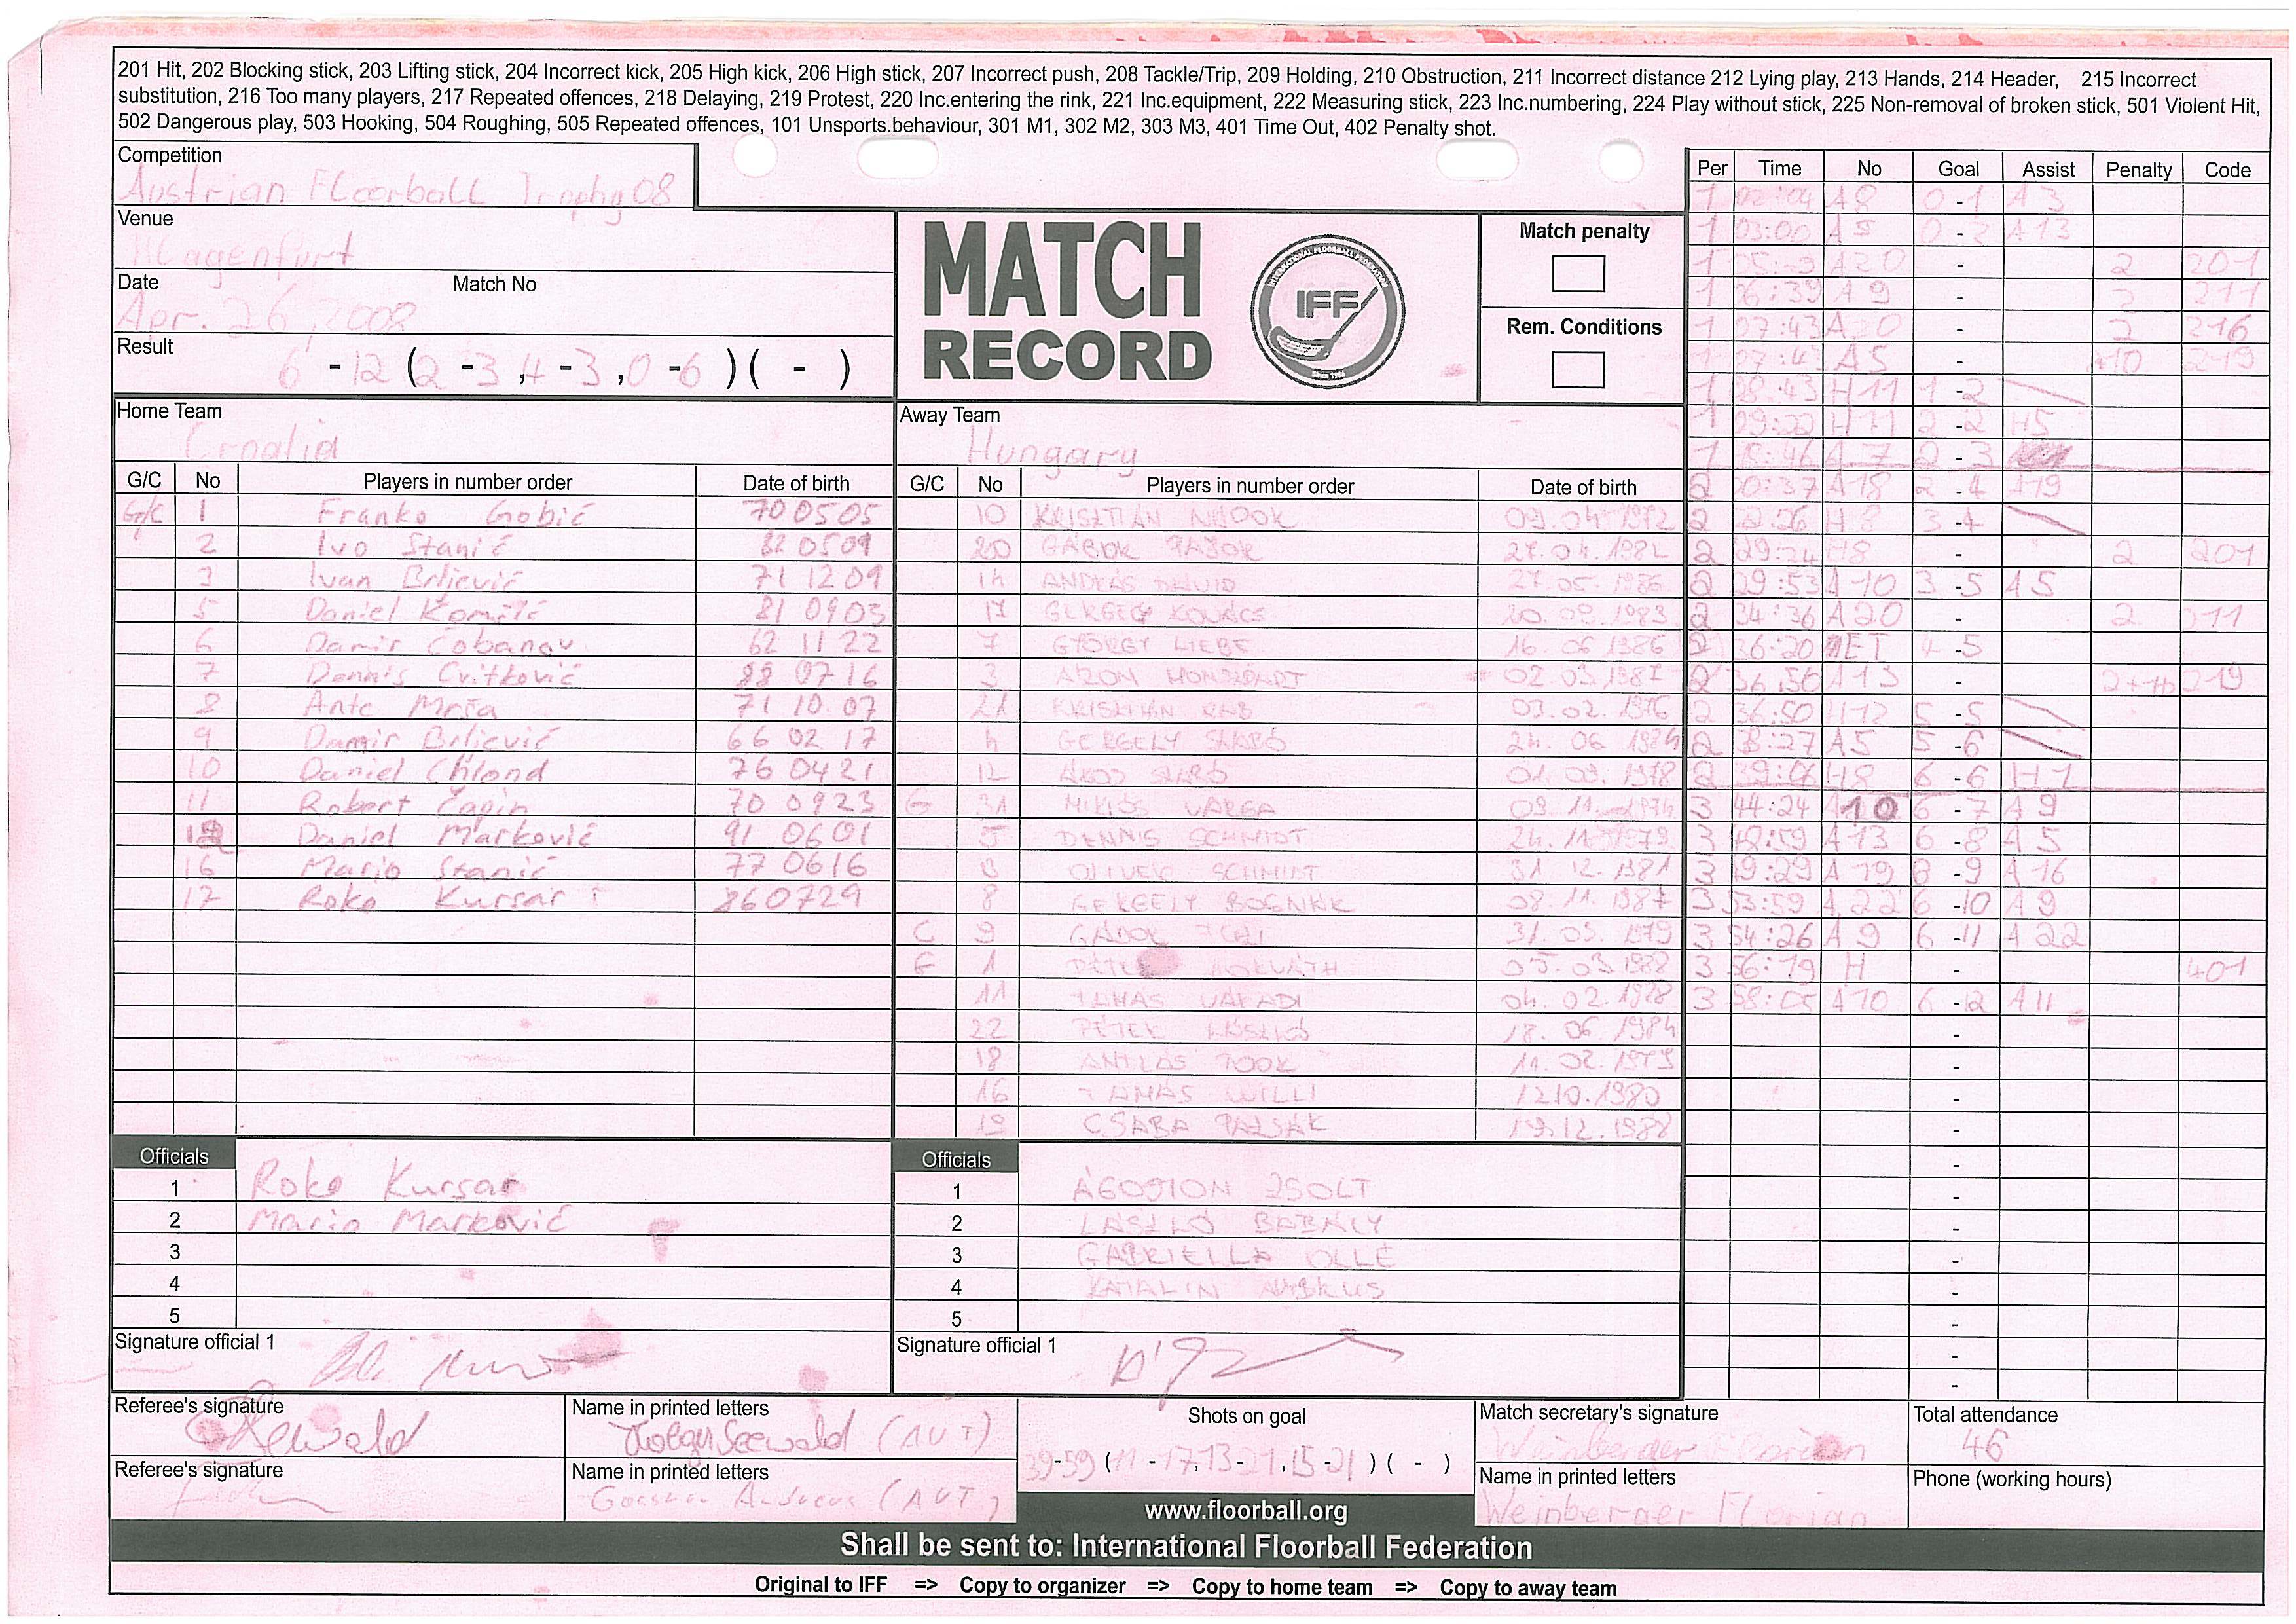 201 Hit, 202 Blocking stick, 203 Lifting stick, 204 Incorrect kick, 205 High kick, 206 High stick, 207 Incorrect push, 208 Tackle/Trip, 209 Holding, 210 Obstruction, 211 Incorrect distance 212 Lying play, 213 Hands, 214 Header, 215 Incorrect
substitution, 216 Too many players, 217 Repeated offences, 218 Delaying, 219 Protest, 220 Inc.entering the rink, 221 Inc.equipment, 222 Measuring stick, 223 Inc.numbering, 224 Play without stick, 225 Non-removal of broken stick, 501 Violent Hit,
502 Dangerous play, 503 Hooking, 504 Roughing, 505 Repeated offences, 101 Unsports.behaviour, 301 M1, 302 M2, 303 M3, 401 Time Out, 402 Penalty shot.
Competition
Austrian Floorball Trophy 08
Venue
Klagenfurt
Date Match No
Apr. 26, 2008
Result
6 - 12 (2 - 3, 4 - 3, 0 - 6) ( - )
MATCH
RECORD
IFF
Match penalty
Rem. Conditions
Home Team
Croatia
G/C No Players in number order Date of birth
G/C 1 Franko Gobić 70 05 05
2 Ivo Stanić 82 05 09
3 Ivan Brlјević 71 12 09
5 Daniel 81 09 03
6 Damir Čobanov 62 11 22
7 Dennis Cvitković 88 07 16
8 Ante Mrša 71 10 07
9 Damir 66 02 17
10 Daniel Chlond 76 04 21
11 Robert 70 09 23
12 Daniel Marković 91 06 01
16 Mario Stanić 77 06 16
17 Roko Kursar 860729
Away Team
Hungary
G/C No Players in number order Date of birth
10 KRISZTIÁN 09.04.1972
20 GÁBOR
14 ANDRÁS DÁVID 27.05.1986
17 GERGELY KOVÁCS 20.09.1983
7 GYÖRGY LIEBE 16.06.1986
3 ÁRON 02.03.1987
21 KRISZTIÁN 03.02.1976
4 GERGELY SZABÓ 24.06.1984
12 SZABÓ 01.09.1978
G 31 MIKLÓS VARGA 09.11.1974
5 DENNIS SCHMIDT 24.11.1979
OLIVER SCHMIDT 31.12.1981
8 GERGELY BOGNÁR 08.11.1987
C 9 GÁBOR 31.03.1979
G 1 PÉTER HORVÁTH 05.03.1988
11 TAMÁS VÁRADI 04.02.1978
22 PÉTER LÁSZLÓ 18.06.1984
18 11.02.1979
16 TAMÁS WILLI 12.10.1980
19 CSABA 19.12.1988
Per Time No Goal Assist Penalty Code
1 02:04 A8 0 - 1 A3
1 03:00 A5 0 - 2 A13
1 A20 - 2 201
1 06:39 A9 - 2 211
1 07:43 A20 - 2 216
1 07:43 A5 - +10 219
1 08:43 H11 1 - 2
1 09:22 H11 2 - 2 H5
1 A7 2 - 3
2 20:37 A18 2 - 4 A19
2 22:26 H8 3 - 4
2 29:24 H8 - 2 201
2 29:53 A10 3 - 5 A5
2 34:36 A20 - 2 211
2 36:20 4 - 5
2 36:50 A13 - 2+10 219
2 36:50 H12 5 - 5
2 38:27 A5 5 - 6
2 39:06 H8 6 - 6 H1
3 44:24 A10 6 - 7 A9
3 48:59 A13 6 - 8 A5
3 49:29 A19 6 - 9 A16
3 53:59 A22 6 - 10 A9
3 54:26 A9 6 - 11 A22
3 56:19 H - 401
3 58:05 A10 6 - 12 A11
Officials
1 Roko Kursar
2 Mario Marković
3
4
5
Signature official 1
Officials
1 ÁGOSTON ZSOLT
2 LÁSZLÓ BABÁLY
3 GABRIELLA OLLÉ
4 KATALIN
5
Signature official 1
Referee's signature
Name in printed letters
Holger Seewald (AUT)
Referee's signature
Name in printed letters
(AUT)
Shots on goal
39-59 (11 - 17, 13 - 21, 15 - 21) ( - )
www.floorball.org
Match secretary's signature
Weinberger Florian
Name in printed letters
Weinberger Florian
Total attendance
46
Phone (working hours)
Shall be sent to: International Floorball Federation
Original to IFF => Copy to organizer => Copy to home team => Copy to away team